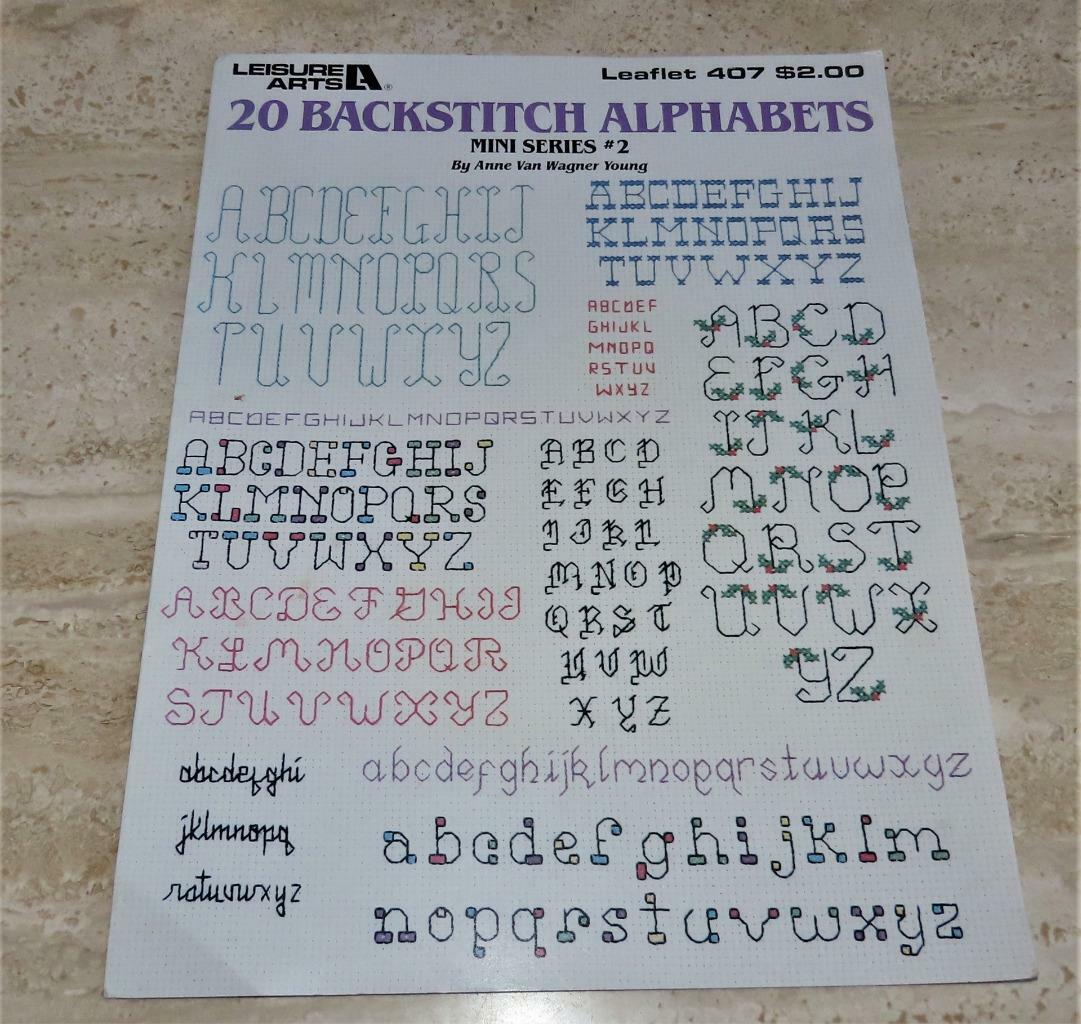 LEISURE
ARTS LA®
Leaflet 407 $2.00
20 BACKSTITCH ALPHABETS
MINI SERIES #2
By Anne Van Wagner Young
ABCDEFGHIJ
KLMNOPQRS
TUVWXYZ
ABCDEFGHIJ
KLMNOPQRS
TUVWXYZ
ABCDEF
GHIJKL
MNOPQ
RSTUV
WXYZ
ABCD
EFGH
IJKL
MNOP
QRST
UVWX
YZ
ABCDEFGHIJKLMNOPQRSTUVWXYZ
ABCDEFGHIJ
KLMNOPQRS
TUVWXYZ
ABCD
EFGH
IJKL
MNOP
QRST
UVW
XYZ
ABCDEFGHIJ
KLMNOPQR
STUVWXYZ
abcdefghi
jklmnopq
rstuvwxyz
abcdefghijklmnopqrstuvwxyz
abcdefghijklm
nopqrstuvwxyz